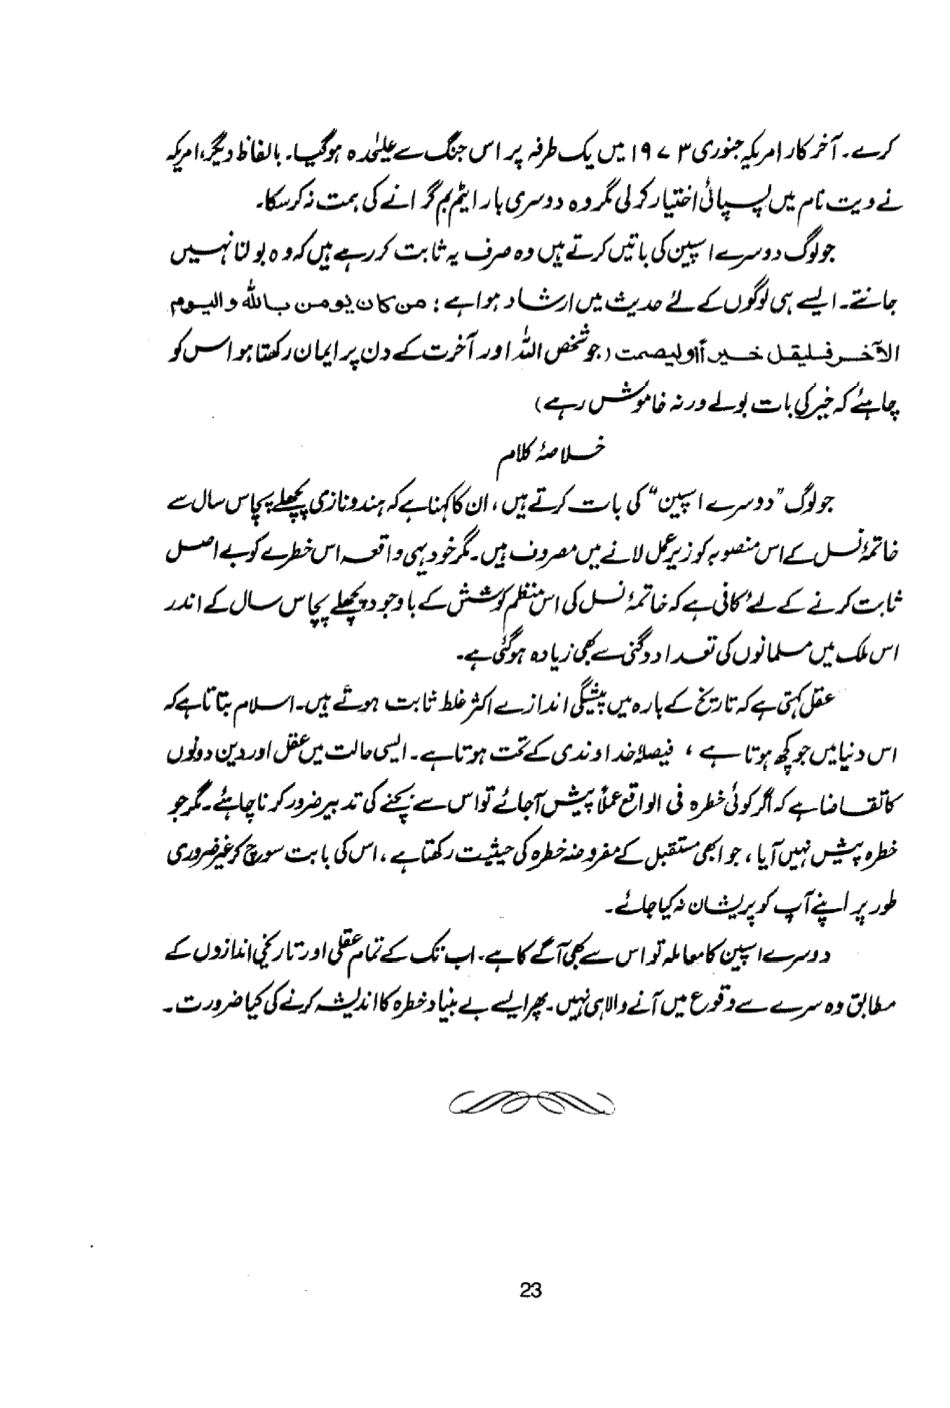 کرے۔ آخر کار امریکہ جنوری ۱۹۷۳ میں یک طرفہ پر اس جنگ سے علیٰحدہ ہوگیا۔ بالفاظ دیگر، امریکہ
نے ویت نام میں پسپائی اختیار کر لی مگر وہ دوسری بار ایٹم بم گرانے کی ہمت نہ کر سکا۔
جو لوگ دوسرے اسپین کی باتیں کرتے ہیں وہ صرف یہ ثابت کر رہے ہیں کہ وہ بولنا نہیں
جانتے۔ ایسے ہی لوگوں کے لئے حدیث میں ارشاد ہوا ہے : من کان یومن باللہ والیوم
الآخر فلیقل خیراً اولیصمت (جو شخص اللہ اور آخرت کے دن پر ایمان رکھتا ہو اس کو
چاہئے کہ خیر کی بات بولے ورنہ خاموش رہے)
خلاصۂ کلام
جو لوگ ”دوسرے اسپین“ کی بات کرتے ہیں، ان کا کہنا ہے کہ ہندو نازی پچھلے پچاس سال سے
خاتمۂ نسل کے اس منصوبہ کو زیر عمل لانے میں مصروف ہیں۔ مگر خود یہی واقعہ اس خطرے کو بے اصل
ثابت کرنے کے لئے کافی ہے کہ خاتمۂ نسل کی اس منظم کوشش کے باوجود پچھلے پچاس سال کے اندر
اس ملک میں مسلمانوں کی تعداد دگنی سے بھی زیادہ ہوگئی ہے۔
عقل کہتی ہے کہ تاریخ کے بارہ میں پیشگی اندازے اکثر غلط ثابت ہوتے ہیں۔ اسلام بتاتا ہے کہ
اس دنیا میں جو کچھ ہوتا ہے ، فیصلۂ خداوندی کے تحت ہوتا ہے۔ ایسی حالت میں عقل اور دین دونوں
کا تقاضا ہے کہ اگر کوئی خطرہ فی الواقع عملاً پیش آجائے تو اس سے بچنے کی تدبیر ضرور کرنا چاہئے۔ مگر جو
خطرہ پیش نہیں آیا، جو ابھی مستقبل کے مفروضہ خطرہ کی حیثیت رکھتا ہے، اس کی بابت سوچ کر غیر ضروری
طور پر اپنے آپ کو پریشان نہ کیا جائے۔
دوسرے اسپین کا معاملہ تو اس سے بھی آگے کا ہے۔ اب تک کے تمام عقلی اور تاریخی اندازوں کے
مطابق وہ سرے سے وقوع میں آنے والا ہی نہیں۔ پھر ایسے بے بنیاد خطرہ کا اندیشہ کرنے کی کیا ضرورت۔
23